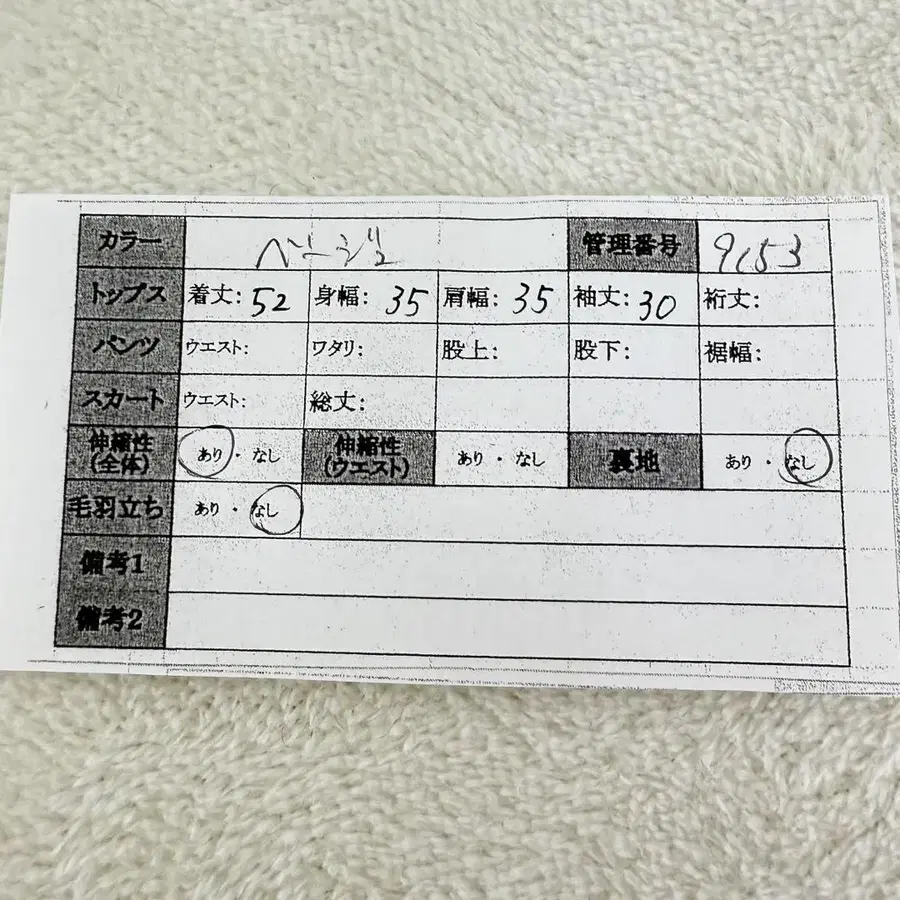 カラー ベージュ 管理番号 9153
トップス 着丈: 52 身幅: 35 肩幅: 35 袖丈: 30 裄丈:
パンツ ウエスト: ワタリ: 股上: 股下: 裾幅:
スカート ウエスト: 総丈:
伸縮性 あり・なし 伸縮性 あり・なし 裏地 あり・なし
(全体) (ウエスト)
毛羽立ち あり・なし
備考1
備考2